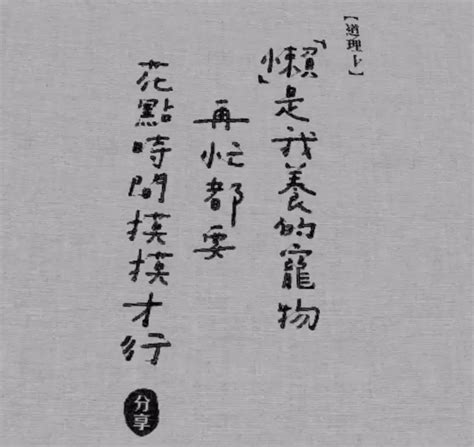 【道理卡】
「懶」是我養的寵物
再忙都要
花點時間摸摸才行
分享